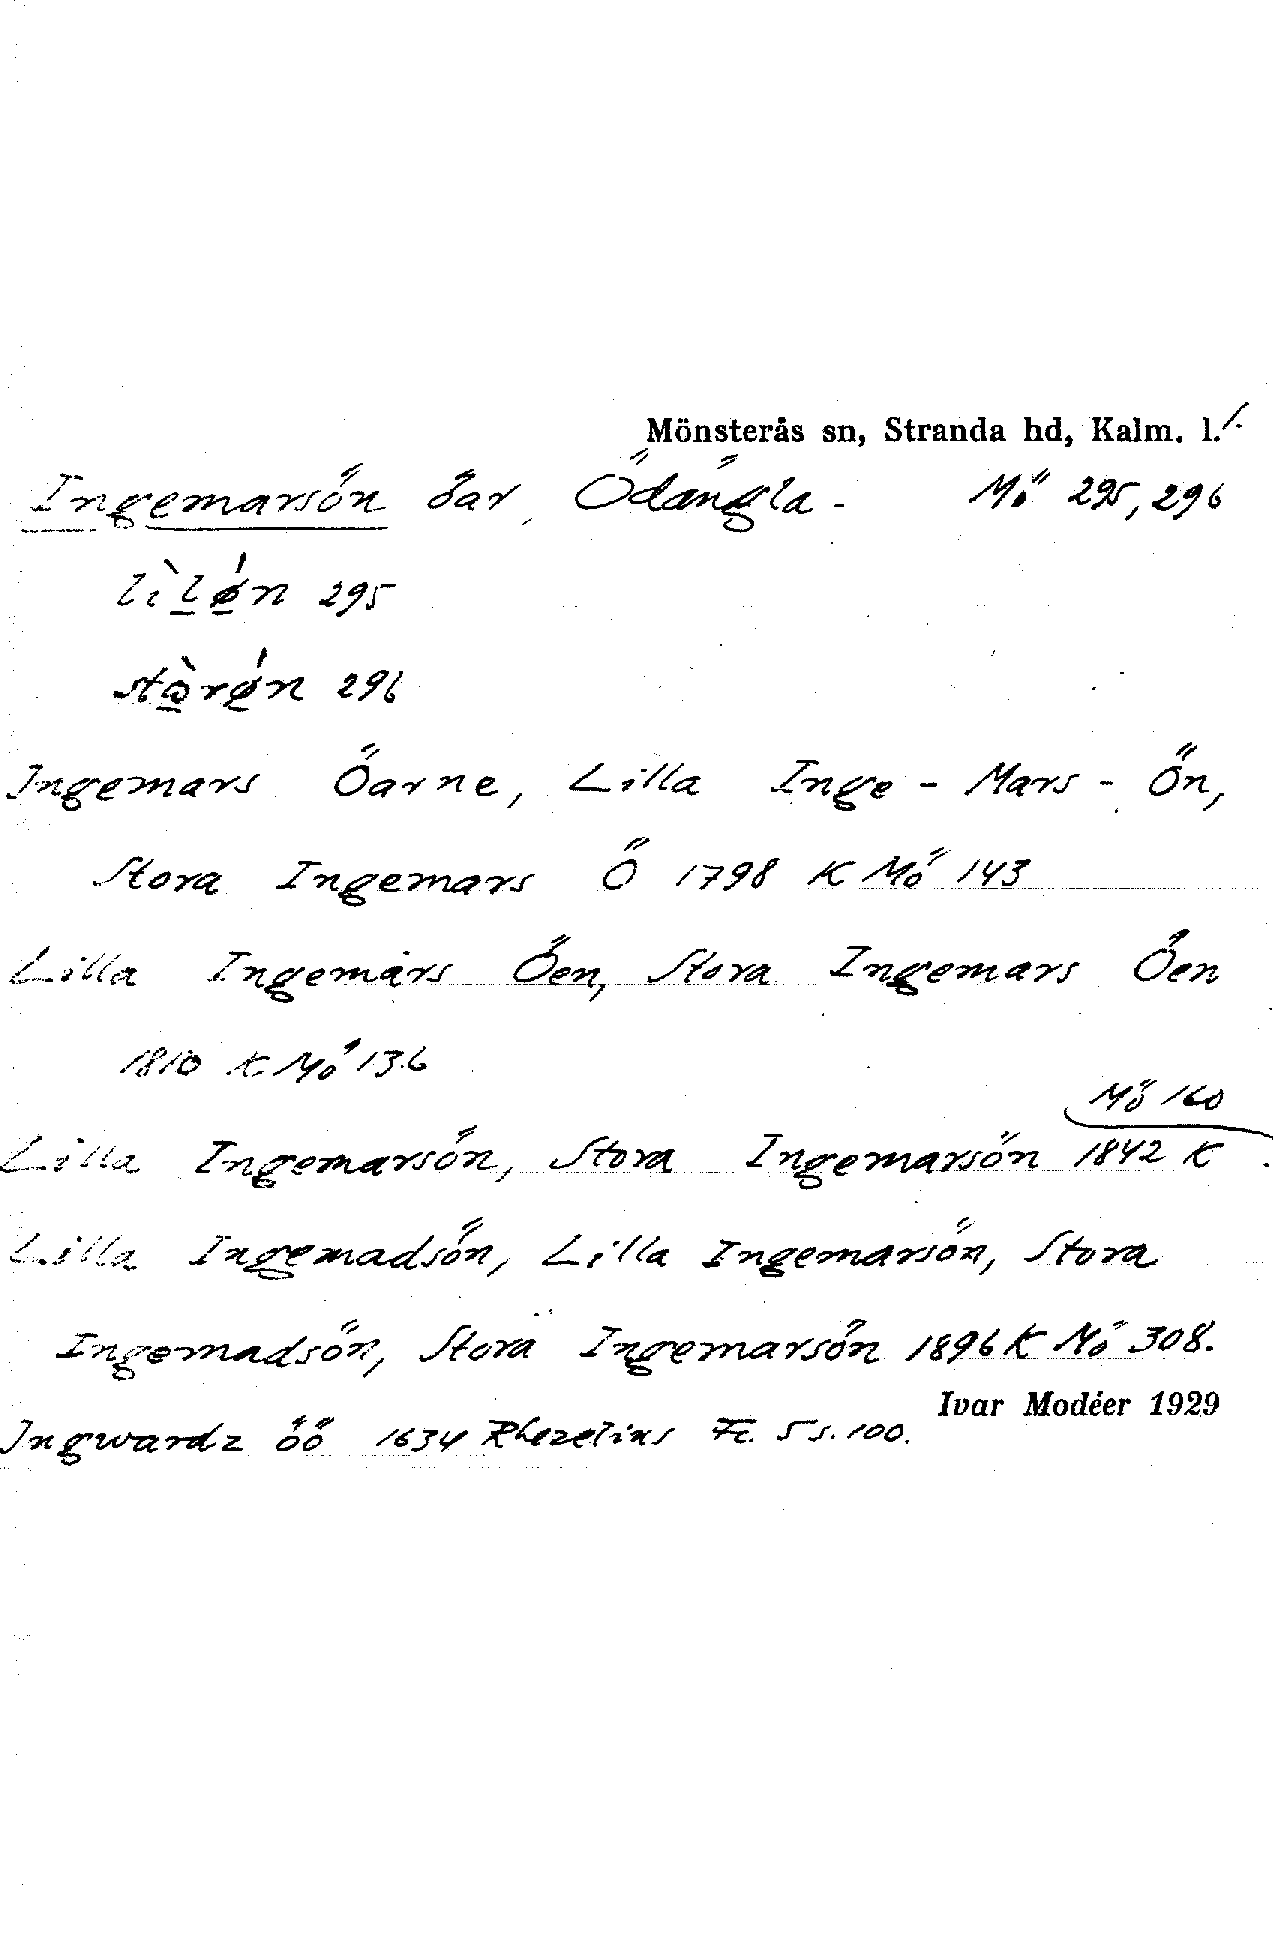 Mönsterås sn, Stranda hd, Kalm. l.
Ingemarsön öar, Ödängla - Mö 295, 296
lìlø̀n 295
stòrø̀n 296
Ingemars Öarne, Lilla Inge - Mars - Ön,
Stora Ingemars Ö 1798 K Mö 143
Lilla Ingemars Öen, Stora Ingemars Öen
1810 K Mö 136
Mö 160
Lilla Ingemarsön, Stora Ingemarsön 1842 K
Lilla Ingemadsön, Lilla Ingemarsön, Stora
Ingemadsön, Stora Ingemarsön 1896 K Mö 308.
Ivar Modéer 1929
Ingwardz öö 1634 Rhezelius Fc. 5 s. 100.